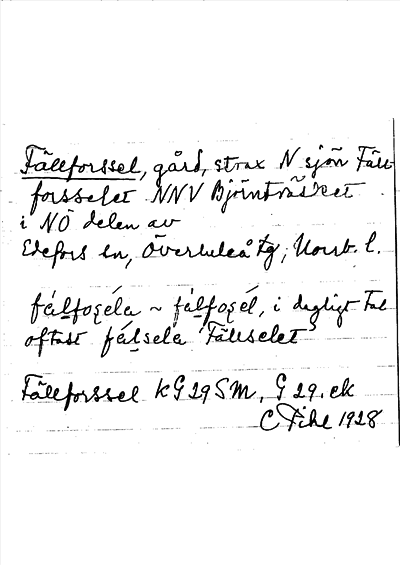 Fällforssel, gård, strax N sjön Fäll-
forsselet NNV Björnträsket
i NÖ delen av
Edefors sn, Överluleå tg, Norrb. l.
fálfoşéla ~ fálfoşél, i dagligt tal
oftast fálsela 'Fällselet'
Fällforssel KG29SM, G29. ek
C Fihl 1928